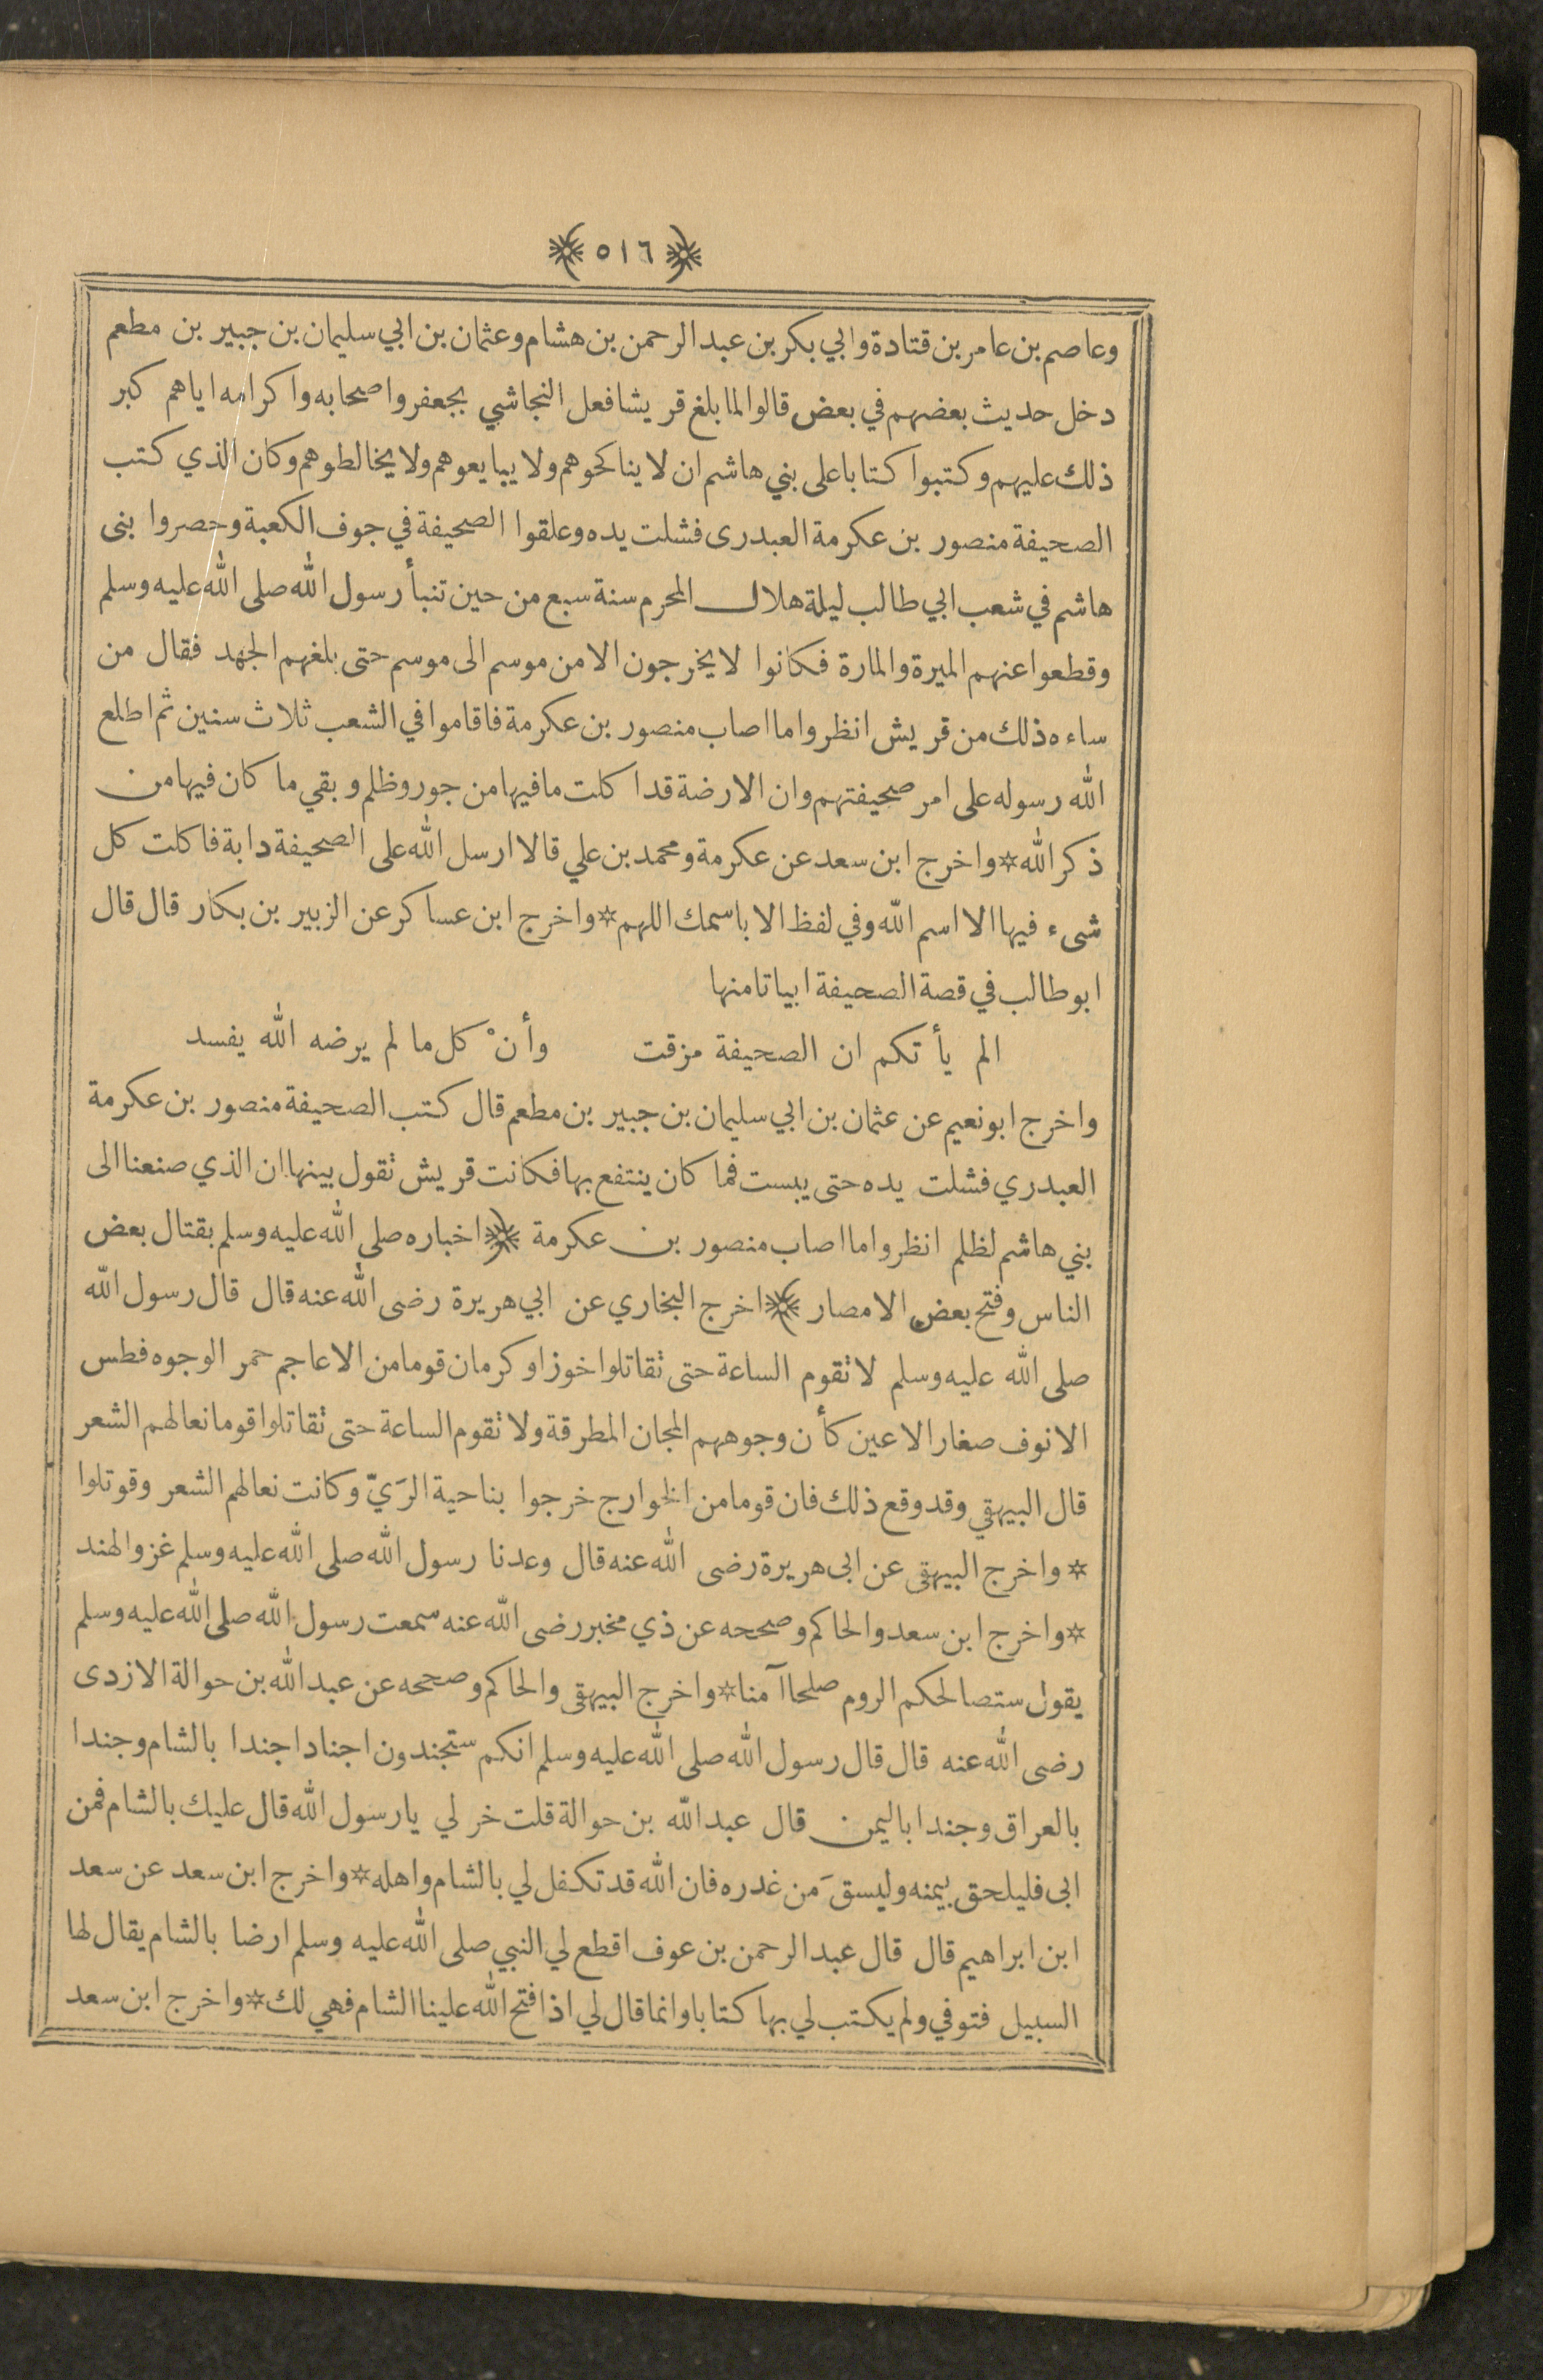 ﴿ ٥١٦ ﴾
وعاصم بن عامر بن قتادة وابي بكر بن عبد الرحمن بن هشام وعثمان بن ابي سليمان بن جبير بن مطعم
دخل حديث بعضهم في بعض قالوا لما بلغ قريشا فعل النجاشي بجعفر واصحابه واكرامه اياهم كبر
ذلك عليهم وكتبوا كتابا على بني هاشم ان لا يناكحوهم ولا يبايعوهم ولا يخالطوهم وكان الذي كتب
الصحيفة منصور بن عكرمة العبدرى فشلت يده وعلقوا الصحيفة في جوف الكعبة وحصروا بنى
هاشم في شعب ابي طالب ليلة هلال المحرم سنة سبع من حين تنبأ رسول الله صلى الله عليه وسلم
وقطعوا عنهم الميرة والمارة فكانوا لا يخرجون الا من موسم الى موسم حتى بلغهم الجهد فقال من
ساءه ذلك من قريش انظروا ما اصاب منصور بن عكرمة فاقاموا في الشعب ثلاث سنين ثم اطلع
الله رسوله على امر صحيفتهم وان الارضة قد اكلت ما فيها من جور وظلم وبقي ما كان فيها من
ذكر الله * واخرج ابن سعد عن عكرمة ومحمد بن علي قالا ارسل الله على الصحيفة دابة فاكلت كل
شىء فيها الا اسم الله وفي لفظ الا باسمك اللهم * واخرج ابن عساكر عن الزبير بن بكار قال قال
ابو طالب في قصة الصحيفة ابياتا منها
الم يأتكم ان الصحيفة مزقت وأنْ كل ما لم يرضه الله يفسد
واخرج ابو نعيم عن عثمان بن ابي سليمان بن جبير بن مطعم قال كتب الصحيفة منصور بن عكرمة
العبدري فشلت يده حتى يبست فما كان ينتفع بها فكانت قريش تقول بينها ان الذي صنعنا الى
بني هاشم لظلم انظروا ما اصاب منصور بن عكرمة ﴿ اخباره صلى الله عليه وسلم بقتال بعض
الناس وفتح بعض الامصار ﴾ اخرج البخاري عن ابي هريرة رضى الله عنه قال قال رسول الله
صلى الله عليه وسلم لا تقوم الساعة حتى تقاتلوا خوزا وكرمان قوما من الاعاجم حمر الوجوه فطس
الانوف صغار الاعين كأن وجوههم المجان المطرقة ولا تقوم الساعة حتى تقاتلوا قوما نعالهم الشعر
قال البيهقي وقد وقع ذلك فان قوما من الخوارج خرجوا بناحية الرَيّ وكانت نعالهم الشعر وقوتلوا
* واخرج البيهقى عن ابى هريرة رضى الله عنه قال وعدنا رسول الله صلى الله عليه وسلم غزو الهند
* واخرج ابن سعد والحاكم وصححه عن ذي مخبر رضى الله عنه سمعت رسول الله صلى الله عليه وسلم
يقول ستصالحكم الروم صلحا آمنا * واخرج البيهقى والحاكم وصححه عن عبد الله بن حوالة الازدى
رضى الله عنه قال قال رسول الله صلى الله عليه وسلم انكم ستجندون اجنادا جندا بالشام وجندا
بالعراق وجندا باليمن قال عبد الله بن حوالة قلت خر لي يا رسول الله قال عليك بالشام فمن
ابى فليلحق بيمنه وليسقَ من غدره فان الله قد تكفل لي بالشام واهله * واخرج ابن سعد عن سعد
ابن ابراهيم قال قال عبد الرحمن بن عوف اقطع لي النبي صلى الله عليه وسلم ارضا بالشام يقال لها
السبيل فتوفي ولم يكتب لي بها كتابا وانما قال لي اذا فتح الله علينا الشام فهي لك * واخرج ابن سعد